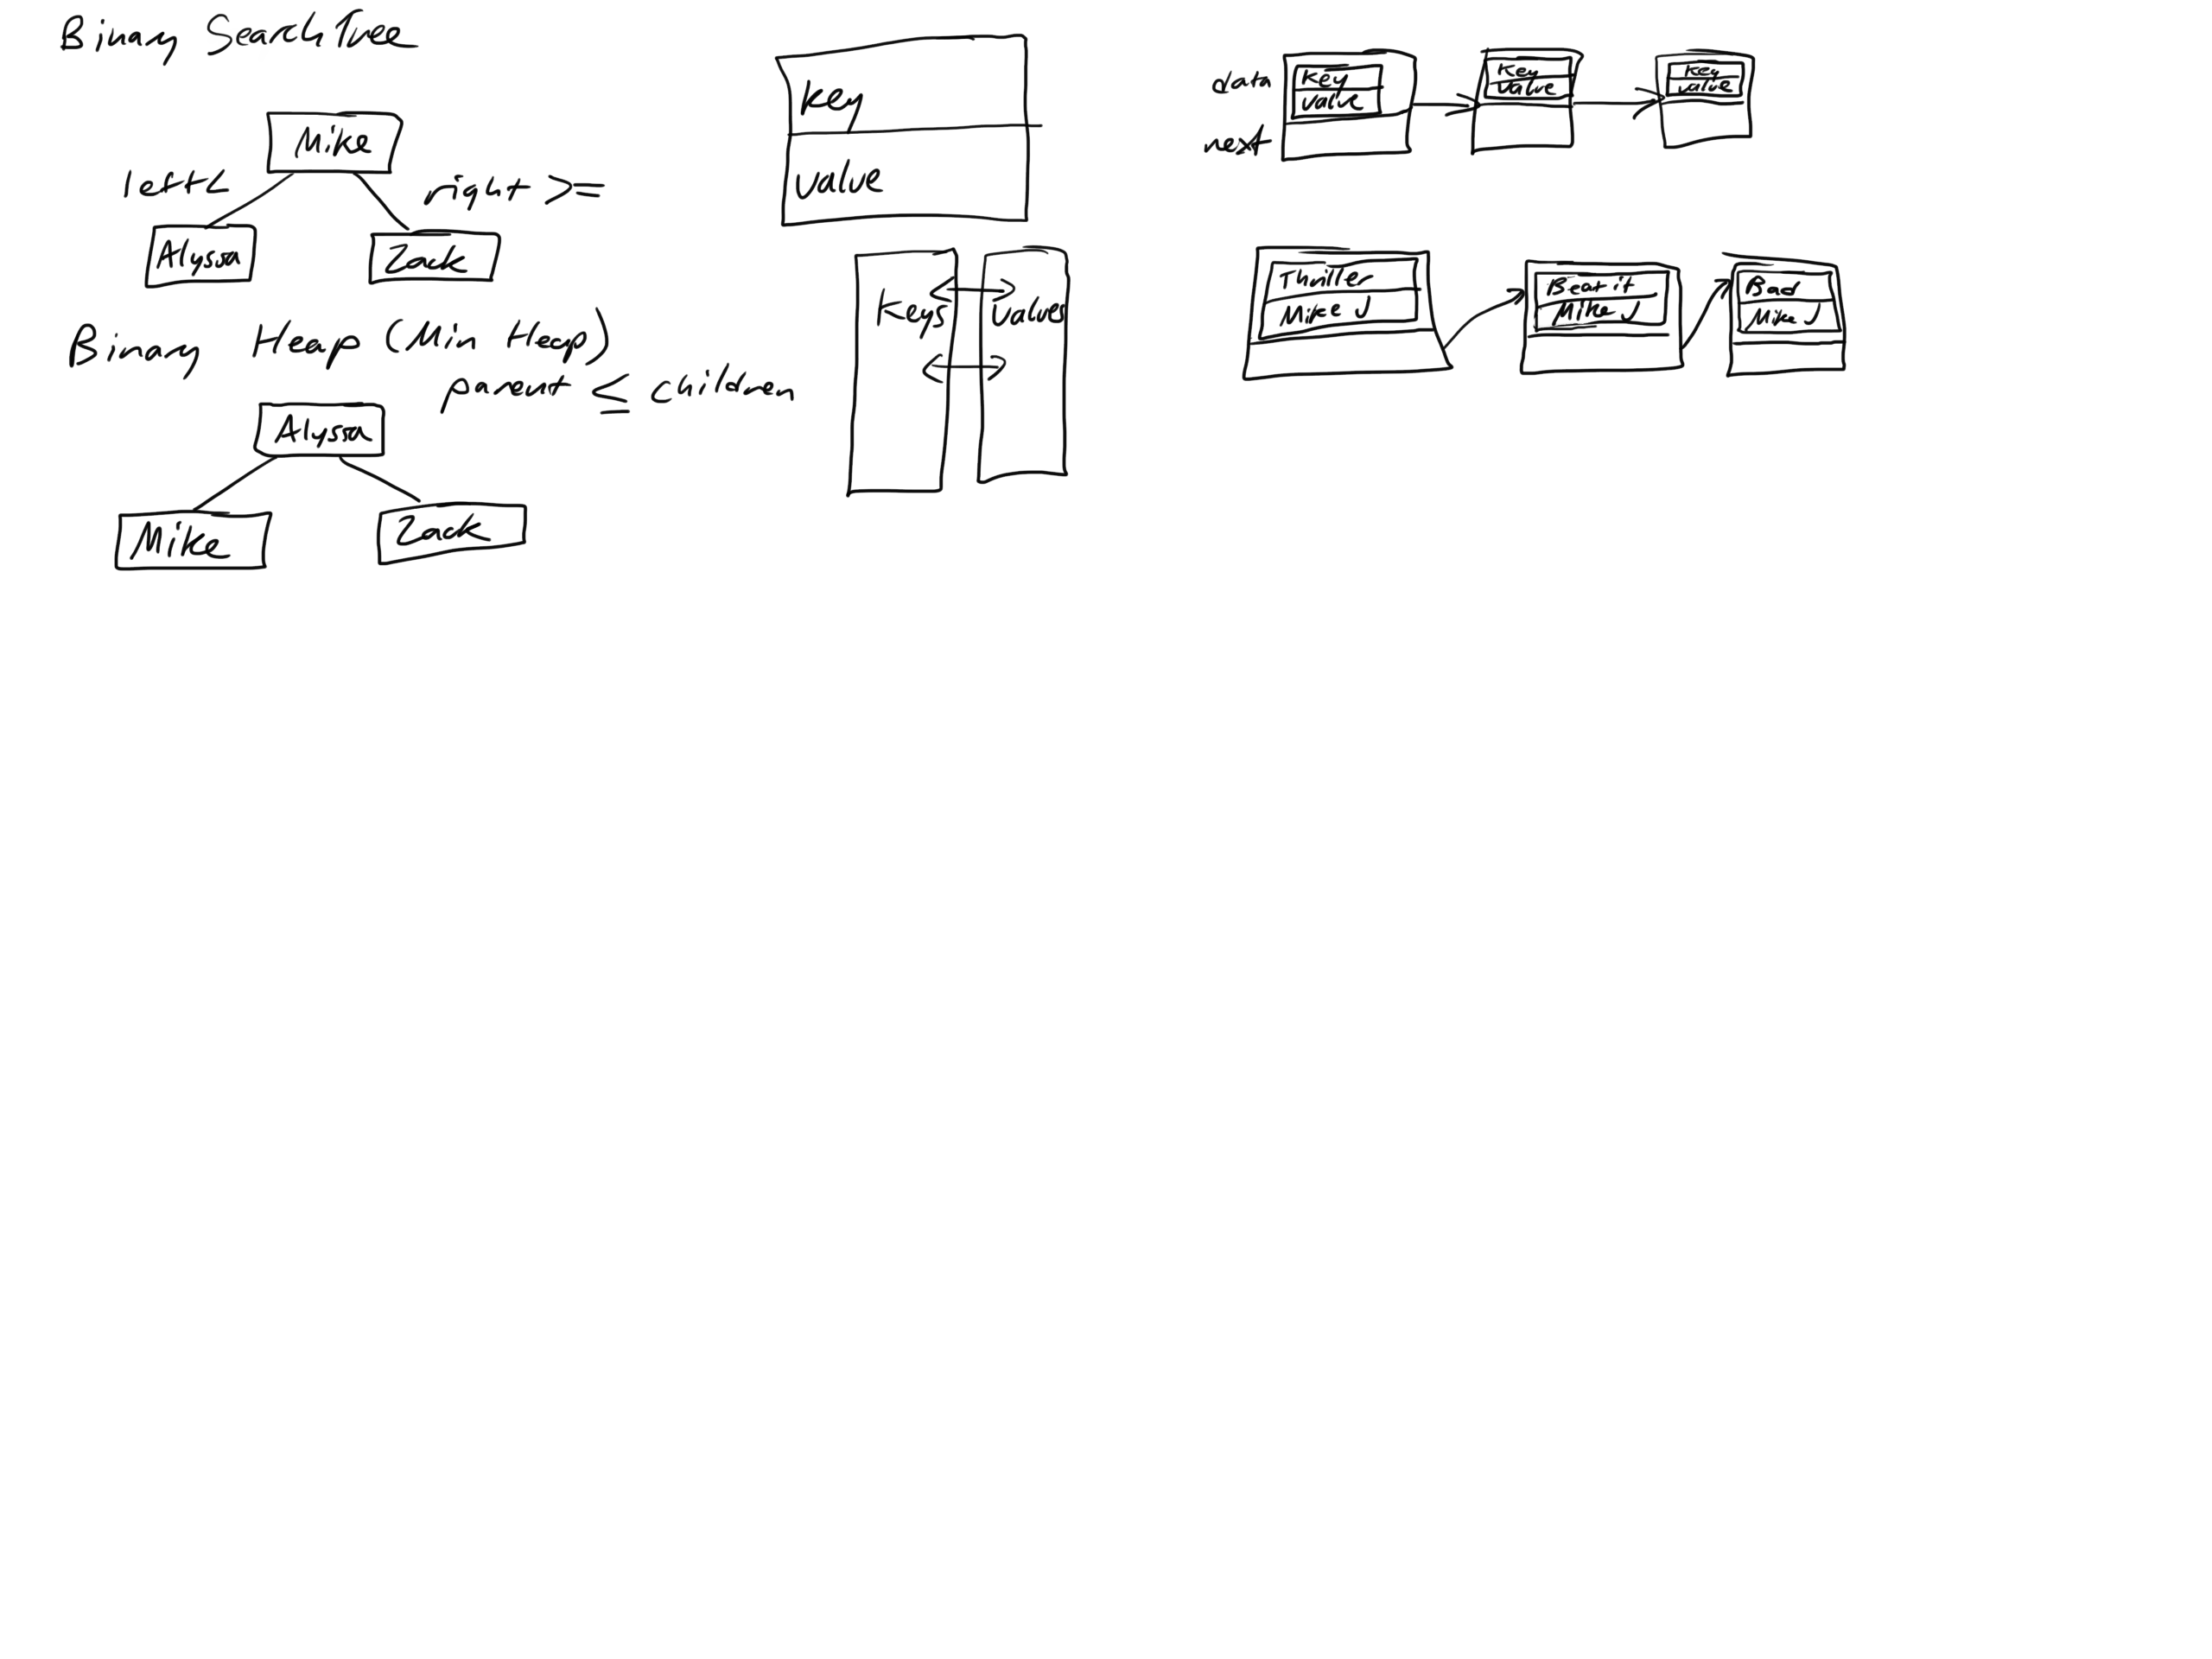 Binary Search Tree
Mike
left<
right >=
Alyssa
Zack
Binary Heap (Min Heap)
parent ≤ children
Alyssa
Mike
Zack
key
value
Keys
Values
data
next
key
value
key
value
key
value
Thriller
Mike J
Beat it
Mike J
Bad
Mike J